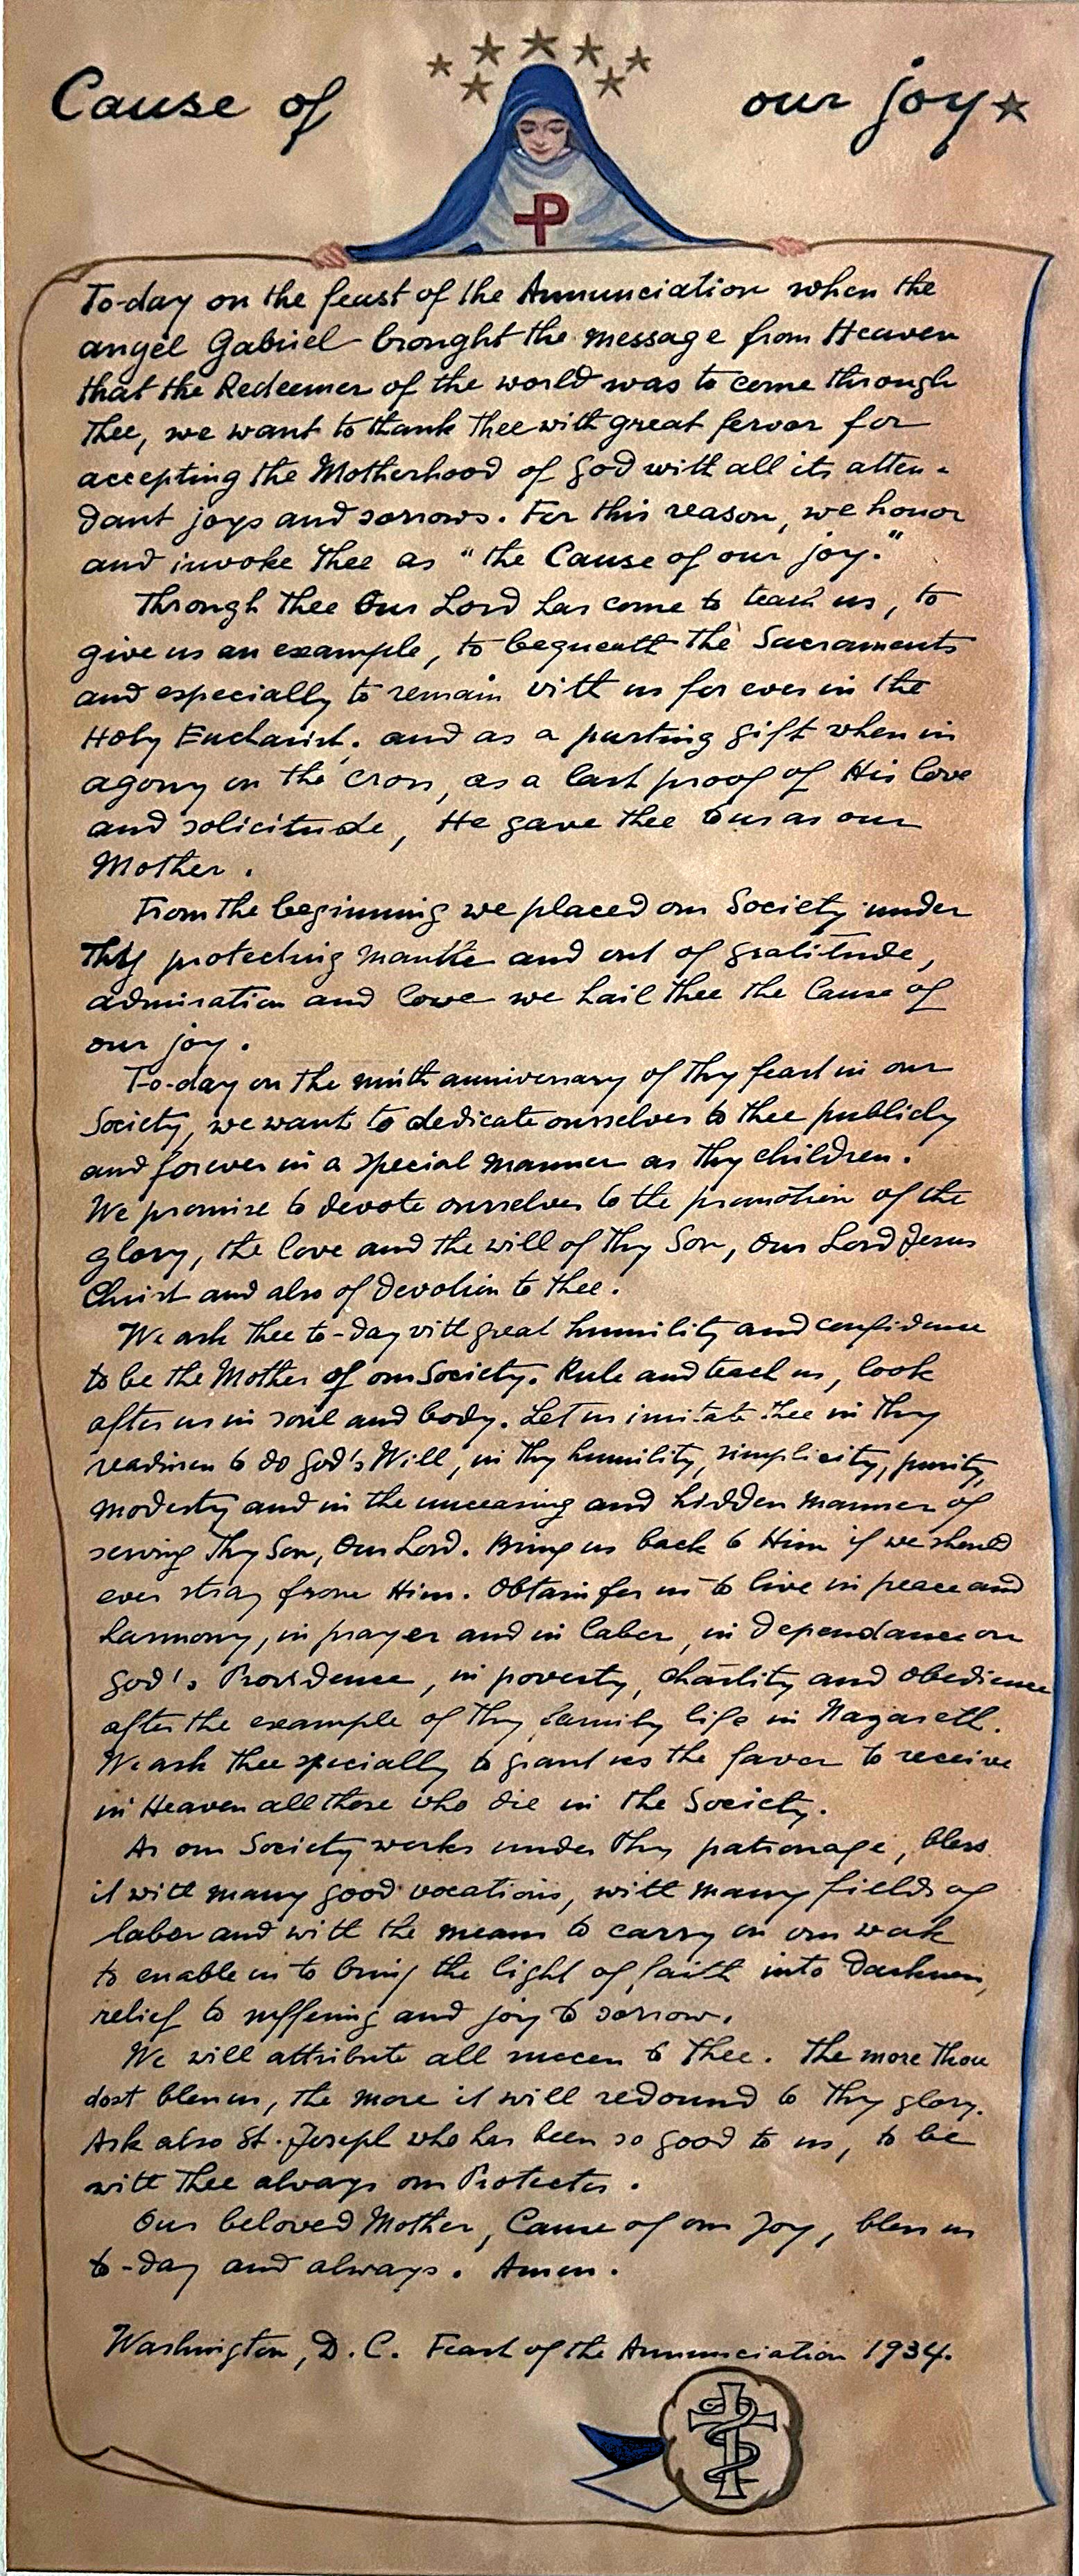 Cause of our joy
To-day on the feast of the Annunciation when the
angel Gabriel brought the message from Heaven
that the Redeemer of the world was to come through
Thee, we want to thank Thee with great fervor for
accepting the Motherhood of God with all its atten-
dant joys and sorrows. For this reason, we honor
and invoke Thee as "the Cause of our joy."
Through Thee Our Lord has come to teach us, to
give us an example, to bequeath the Sacraments
and especially to remain with us for ever in the
Holy Eucharist. and as a parting gift when in
agony on the cross, as a last proof of His love
and solicitude, He gave Thee to us as our
Mother.
From the beginning we placed our Society under
Thy protecting mantle and out of gratitude,
admiration and love we hail Thee the Cause of
our joy.
To-day on the ninth anniversary of Thy feast in our
Society, we want to dedicate ourselves to Thee publicly
and forever in a special manner as Thy children.
We promise to devote ourselves to the promotion of the
glory, the love and the will of Thy Son, Our Lord Jesus
Christ and also of devotion to Thee.
We ask Thee to-day with great humility and confidence
to be the Mother of our Society. Rule and teach us, look
after us in soul and body. Let us imitate Thee in Thy
readiness to do God's Will, in Thy humility, simplicity, purity,
modesty and in the unceasing and hidden manner of
serving Thy Son, Our Lord. Bring us back to Him if we should
ever stray from Him. Obtain for us to live in peace and
harmony, in prayer and in labor, in dependance on
God's Providence, in poverty, chastity and obedience
after the example of Thy family life in Nazareth.
We ask Thee specially to grant us the favor to receive
in Heaven all those who die in the Society.
As our Society works under Thy patronage, bless
it with many good vocations, with many fields of
labor and with the means to carry on our work
to enable us to bring the light of faith into darkness,
relief to suffering and joy to sorrow.
We will attribute all success to Thee. The more Thou
dost bless us, the more it will redound to Thy glory.
Ask also St. Joseph who has been so good to us, to be
with Thee always our Protector.
Our beloved Mother, Cause of our Joy, bless us
to-day and always. Amen.
Washington, D.C. Feast of the Annunciation 1934.